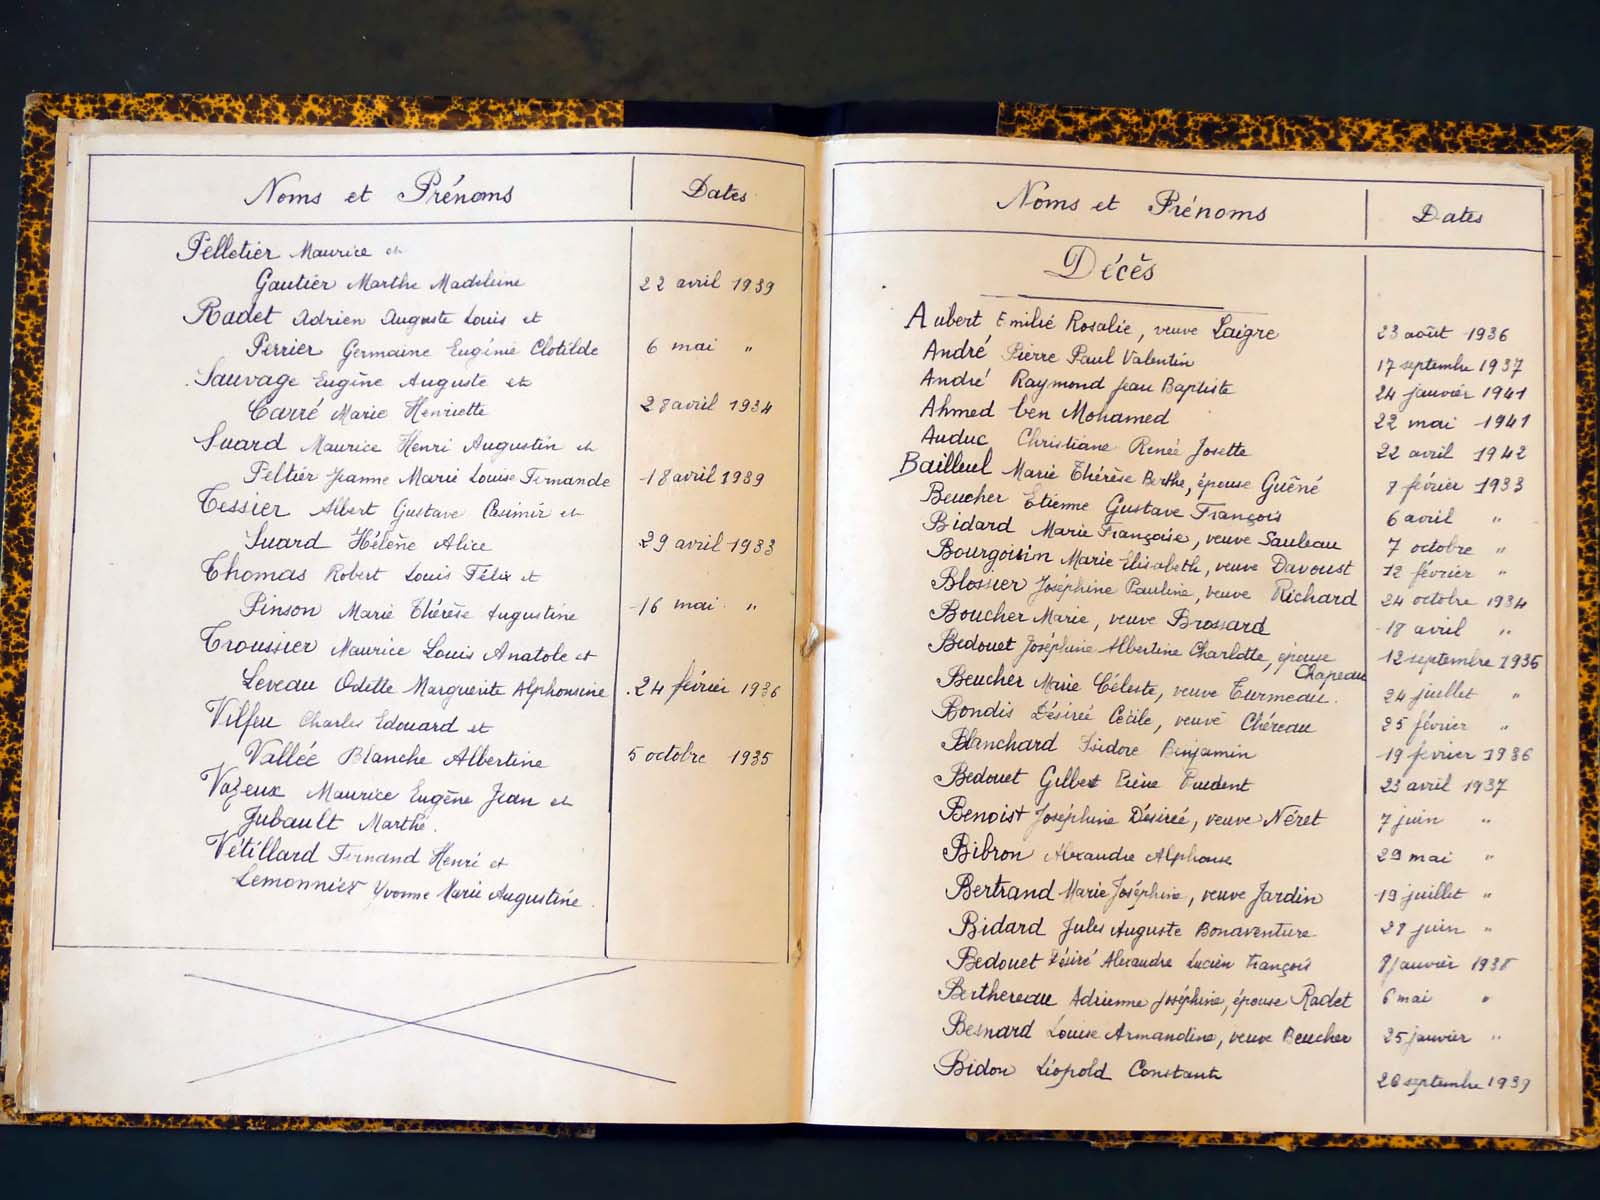 Noms et Prénoms Dates
Pelletier Maurice et
Gautier Marthe Madeleine 22 avril 1939
Radet Adrien Auguste Louis et
Perrier Germaine Eugénie Clotilde 6 mai "
Sauvage Eugène Auguste et
Carré Marie Henriette 28 avril 1934
Suard Maurice Henri Augustin et
Peltier Jeanne Marie Louise Fernande 18 avril 1939
Tessier Albert Gustave Casimir et
Suard Hélène Alice 29 avril 1933
Thomas Robert Louis Félix et
Pinson Marie Thérèse Augustine 16 mai "
Troussier Maurice Louis Anatole et
Leveau Odette Marguerite Alphonsine 24 février 1936
Vilfeu Charles Edouard et
Vallée Blanche Albertine 5 octobre 1935
Vazeux Maurice Eugène Jean et
Jubault Marthe.
Vétillard Fernand Henri et
Lemonnier Yvonne Marie Augustine.
Noms et Prénoms Dates
Décès
Aubert Emilie Rosalie, veuve Laigre 23 août 1936
André Pierre Paul Valentin 17 septembre 1937
André Raymond Jean Baptiste 24 janvier 1941
Ahmed ben Mohamed 22 mai 1941
Auduc Christiane Renée Josette 22 avril 1942
Bailleul Marie Thérèse Berthe, épouse Guéné 7 février 1933
Beucher Etienne Gustave François 6 avril "
Bidard Marie Françoise, veuve Sauleau 7 octobre "
Bourgoisin Marie Elisabeth, veuve Davoust 12 février "
Blossier Joséphine Pauline, veuve Richard 24 octobre 1934
Boucher Marie, veuve Brossard 18 avril "
Bedouet Joséphine Albertine Charlotte, épouse Chapeau 12 septembre 1936
Beucher Marie Céleste, veuve Turmeau. 24 juillet "
Bondis Désireé Cécile, veuve Chéreau 25 février "
Blanchard Isidore Benjamin 19 février 1936
Bedouet Gilbert Prudent 23 avril 1937
Benoist Joséphine Désireé, veuve Néret 7 juin "
Bibron Alexandre Alphonse 29 mai "
Bertrand Marie Joséphine, veuve Jardin 19 juillet "
Bidard Jules Auguste Bonaventure 28 juin "
Bedouet Désiré Alexandre Lucien François 8 janvier 1938
Berthereau Adrienne Joséphine, épouse Radet 6 mai "
Besnard Louise Armandine, veuve Beucher 25 janvier "
Bidon Léopold Constant 26 septembre 1939